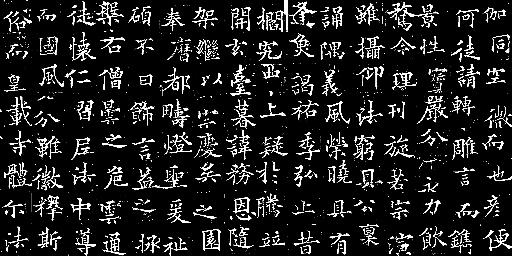 伽同空微而也彦便
何徒請轉雕言而鐫
景性寶嚴分永力飲
令理刊旋若宗演
雖攝仰法窮具公稟
誦隅義風榮曉具有
逢奐謁祐季弘上昔
宛西上疑於騰竝
開玄臺暮諱務恩隨
架繼以宗慶矣之園
奉曆都疇燈聖爰祉
碩不曰飾言益之拯
槃右僧曇之危雲通
徒懷仁習后法中導
而國風分雖徽擇斯
俗而皇載寺體尔法